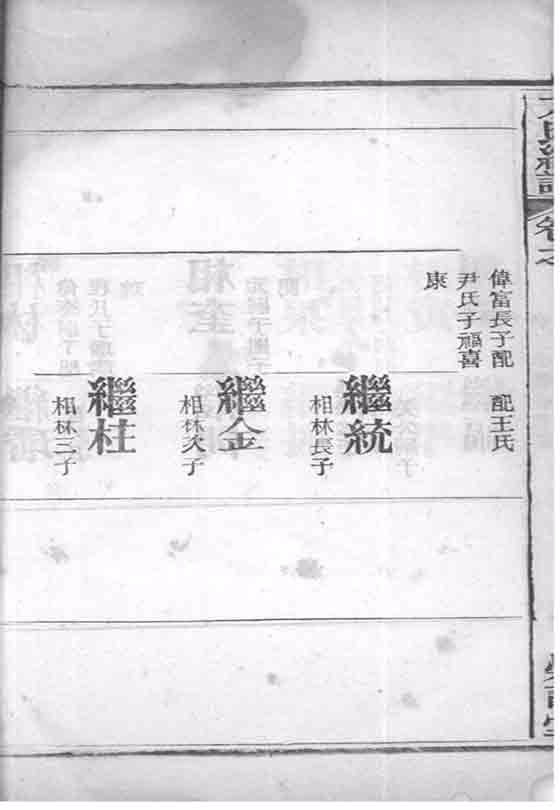 偉富長子配
尹氏子福喜
康
配王氏
繼統
相林長子
繼金
相林次子
繼柱
相林三子